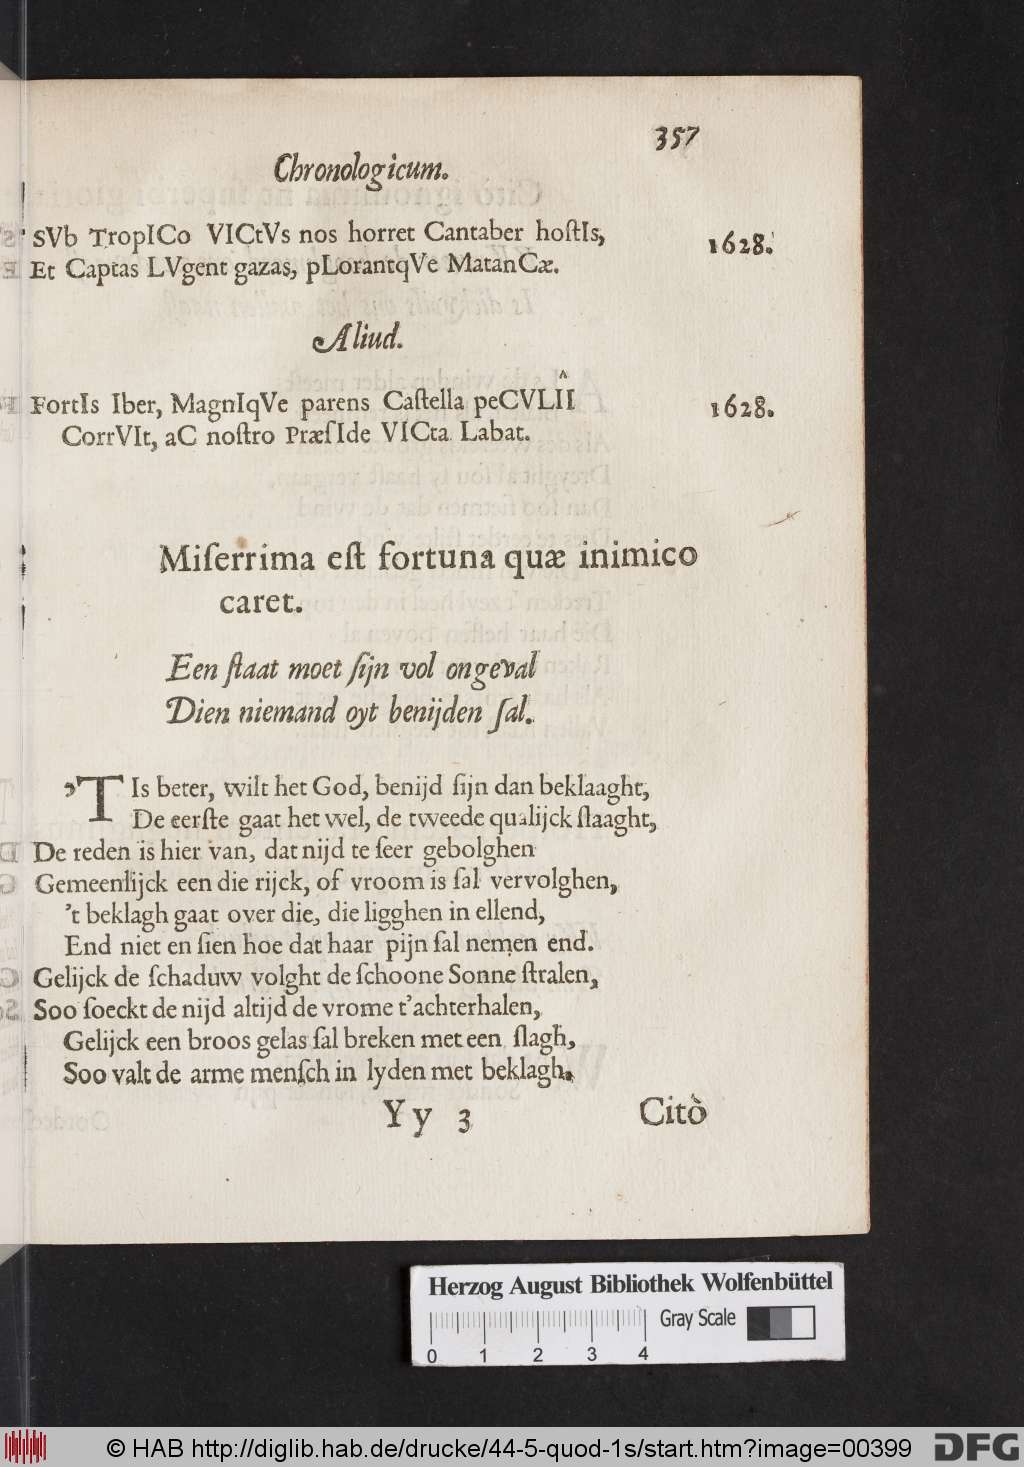 357
Chronologicum.
SVb TropICo VICtVs nos horret Cantaber hoſtIs,
1628.
Et Captas LVgent gazas, pLorantqVe MatanCæ.
Aliud.
FortIs Iber, MagnIqVe parens Caſtella peCVLIÎ
1628.
CorrVIt, aC noſtro PræſIde VICta Labat.
Miſerrima eſt fortuna quæ inimico
caret.
Een ſtaat moet ſijn vol ongeval
Dien niemand oyt benijden ſal.
'TIs beter, wilt het God, benijd ſijn dan beklaaght,
De eerſte gaat het wel, de tweede qualijck ſlaaght,
De reden is hier van, dat nijd te ſeer gebolghen
Gemeenlijck een die rijck, of vroom is ſal vervolghen,
't beklagh gaat over die, die ligghen in ellend,
End niet en ſien hoe dat haar pijn ſal nemen end.
Gelijck de ſchaduw volght de ſchoone Sonne ſtralen,
Soo ſoeckt de nijd altijd de vrome t'achterhalen,
Gelijck een broos gelas ſal breken met een ſlagh,
Soo valt de arme menſch in lyden met beklagh.
Yy 3
Citò
Herzog August Bibliothek Wolfenbüttel
Gray Scale
0 1 2 3 4
© HAB http://diglib.hab.de/drucke/44-5-quod-1s/start.htm?image=00399
DFG